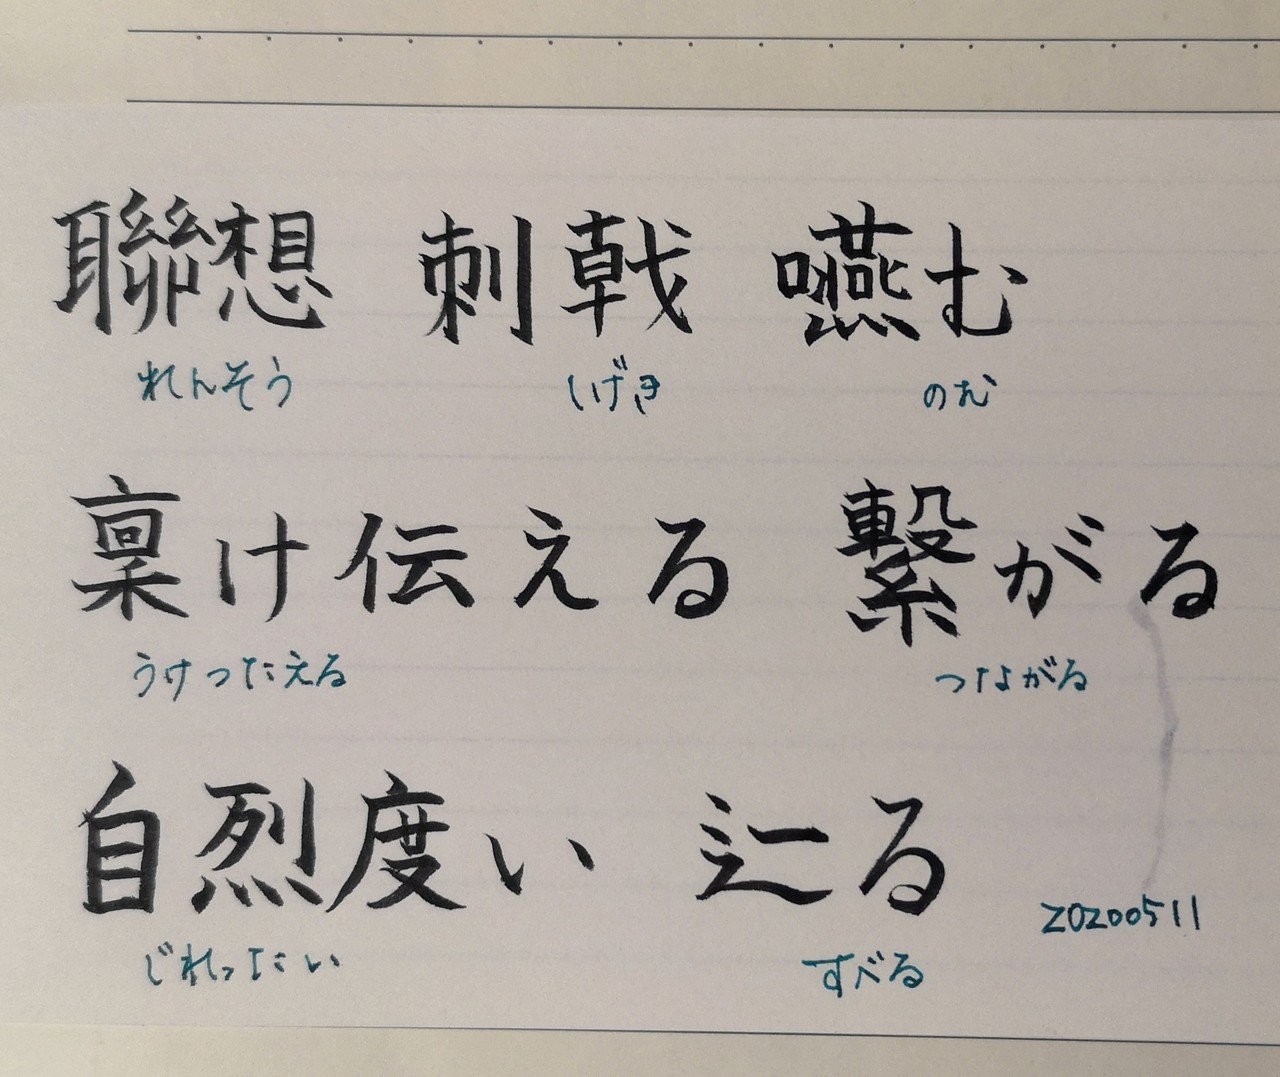 聯想 刺戟 嚥む
れんそう しげき のむ
稟け伝える 繋がる
うけつたえる つながる
自烈度い 辷る
じれったい すべる
20200511